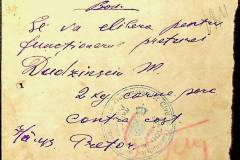 Bon
Se va elibera pentru
functionerul preturei
Dudzinscki M.
2 kg carne porc
contra cost
Pretor